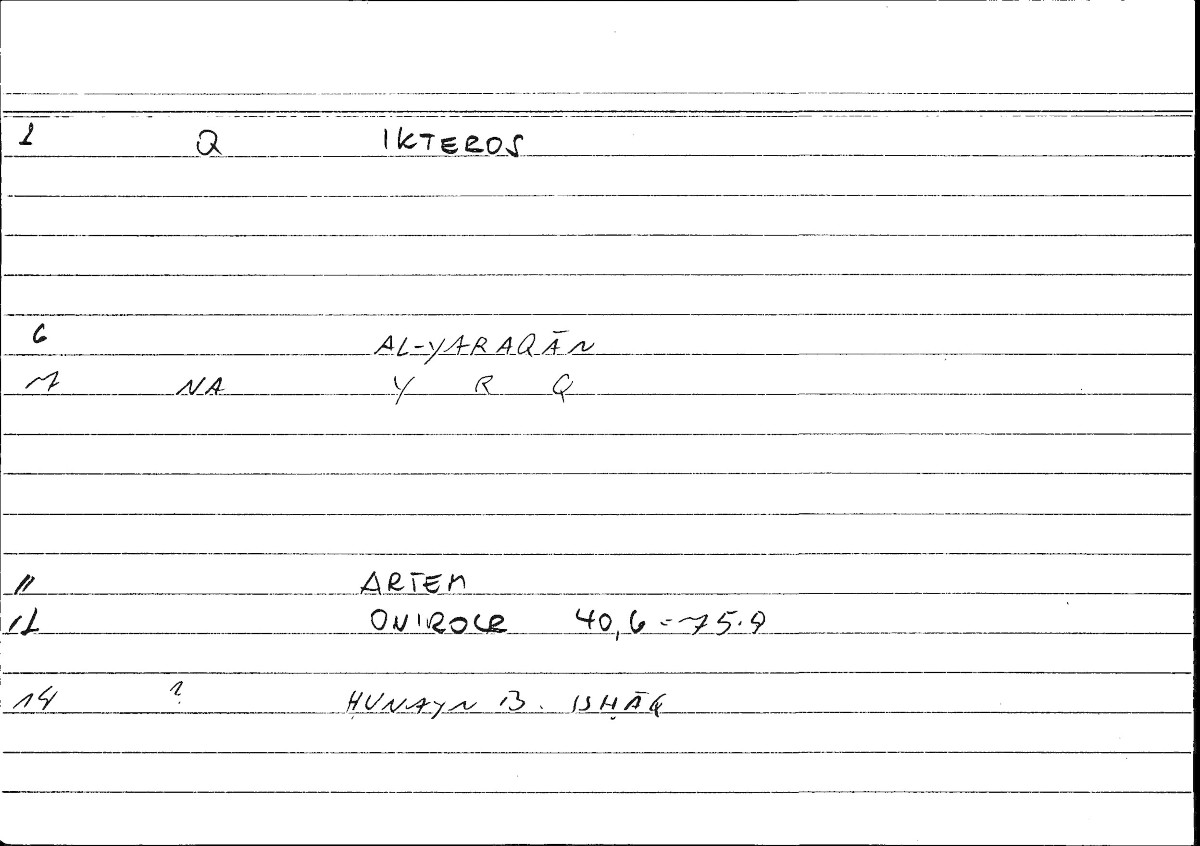 1 Q IKTEROS
6 AL-YARAQĀN
7 NA Y R Q
11 ARTEM
12 ONIROCR 40,6 = 75.9
14 ? ḤUNAYN B. ISḤĀQ